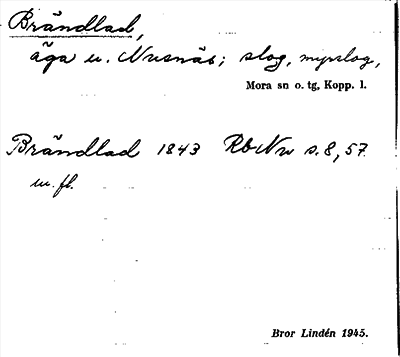 Brändlad,
äga u. Nusnäs; slog, myrslog,
Mora sn o. tg, Kopp. l.
Brändlad 1843 RbNu s. 8, 57
m. fl.
Bror Lindén 1945.